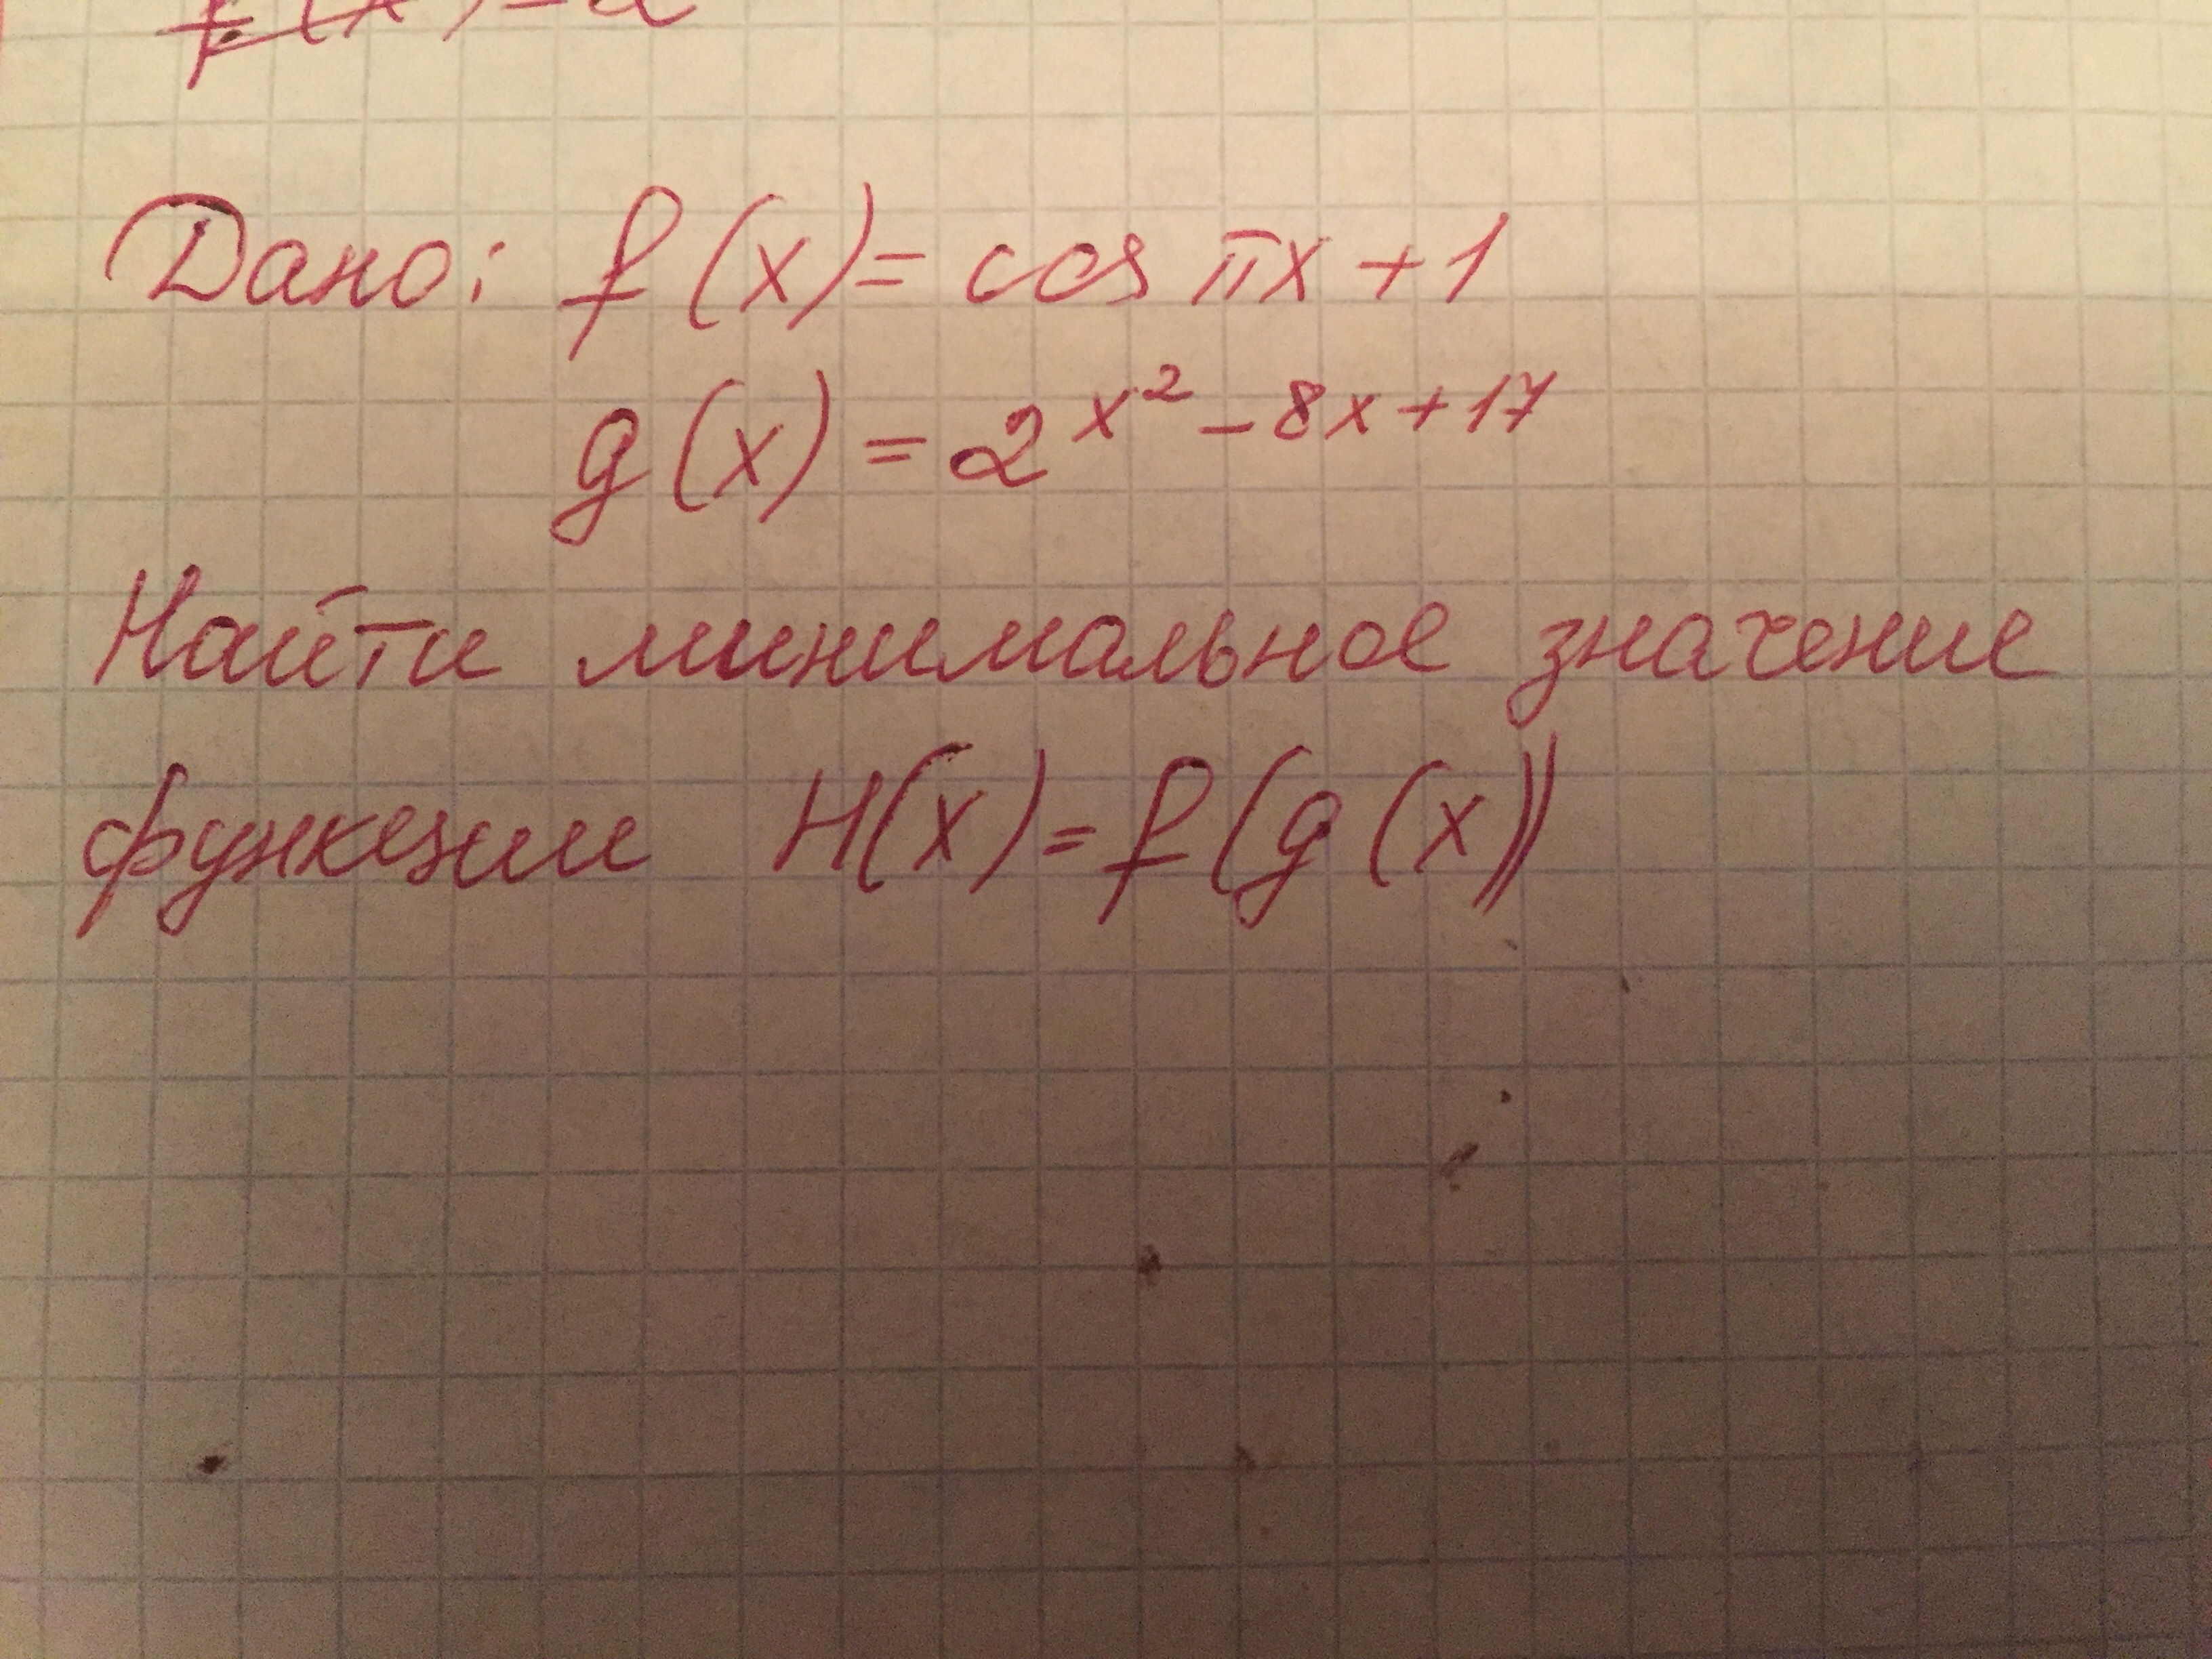 f(x)=2
Дано: f(x)= cos πx+1
g(x)=2^{x^2-8x+17}
Найти минимальное значение
функции H(x)=f(g(x))